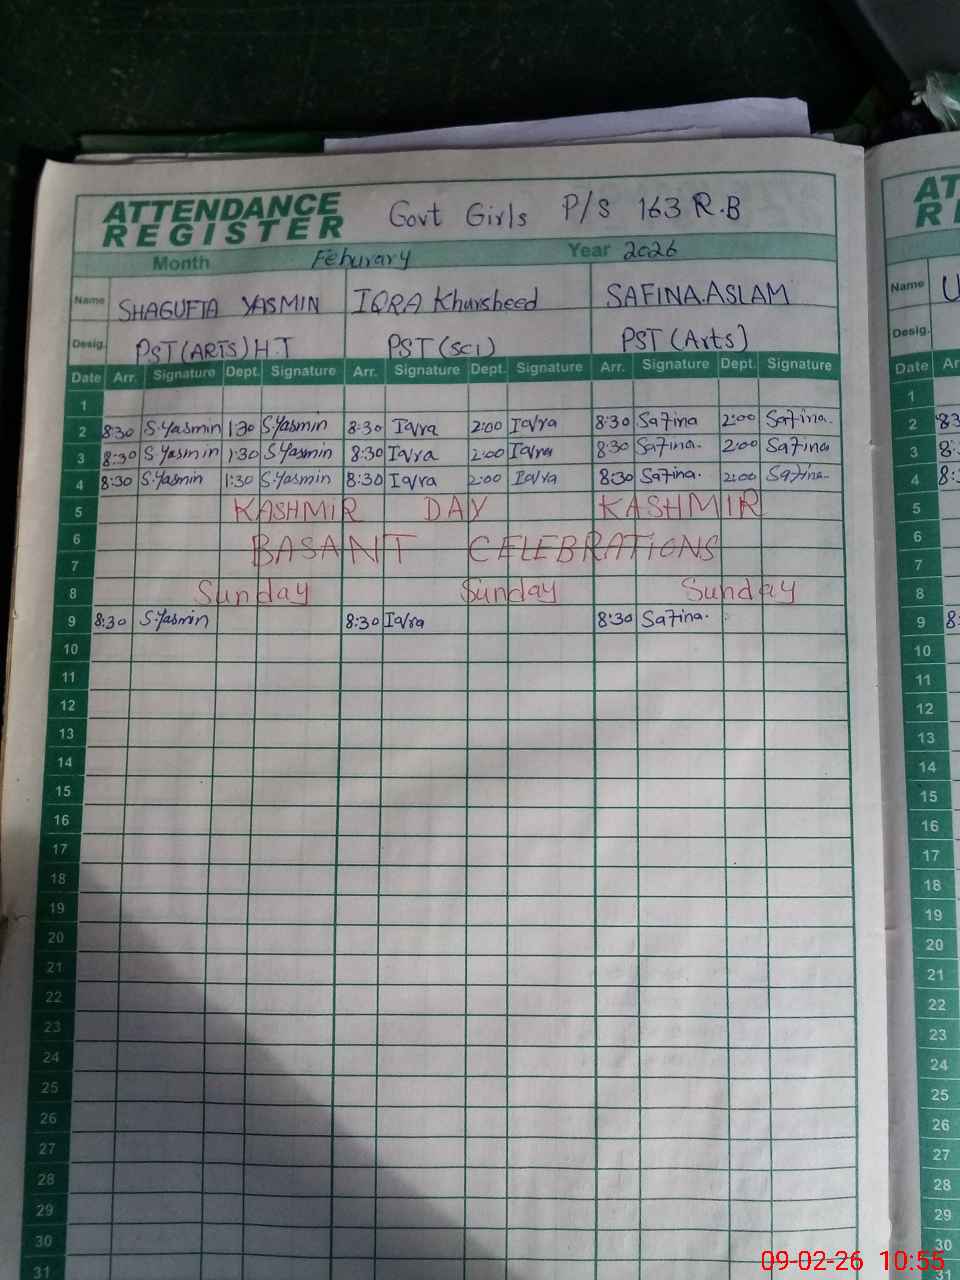 ATTENDANCE REGISTER Govt Girls P/S 163 R.B
Month Feburary Year 2026
Name SHAGUFTA YASMIN IQRA Khursheed SAFINA.ASLAM
Desig. PST (ARTS) H.T PST (SCI) PST (Arts)
Date Arr. Signature Dept. Signature Arr. Signature Dept. Signature Arr. Signature Dept. Signature
1
2 8:30 S.Yasmin 1:30 S.Yasmin 8:30 Iqra 2:00 Iqra 8:30 Safina 2:00 Safina.
3 8:30 S.Yasmin 1:30 S.Yasmin 8:30 Iqra 2:00 Iqra 8:30 Safina. 2:00 Safina
4 8:30 S.Yasmin 1:30 S.Yasmin 8:30 Iqra 2:00 Iqra 8:30 Safina. 2:00 Safina.
5 KASHMIR DAY KASHMIR
6
BASANT CELEBRATIONS
7
8 Sunday Sunday Sunday
9 8:30 S.Yasmin 8:30 Iqra 8:30 Safina.
10
11
12
13
14
15
16
17
18
19
20
21
22
23
24
25
26
27
28
29
30
31
AT
R
Name U
Desig.
Date Ar
1
2 8:3
3 8:
4 8:3
5
6
7
8
9 8:
10
11
12
13
14
15
16
17
18
19
20
21
22
23
24
25
26
27
28
29
30
31
09-02-26 10:55